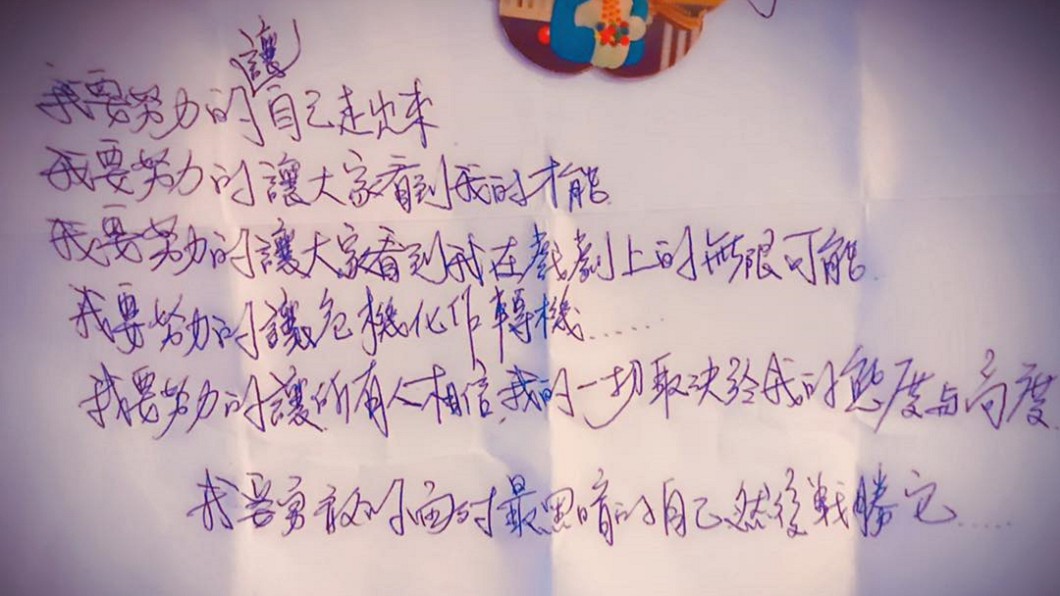 我要努力的讓自己走出來
我要努力的讓大家看到我的才能
我要努力的讓大家看到我在戲劇上的無限可能.
我要努力的讓危機化作轉機......
我要努力的讓所有人相信,我的一切取决於我的態度与高度.
我要勇敢的面对最黑暗的自己然後戰勝它.....